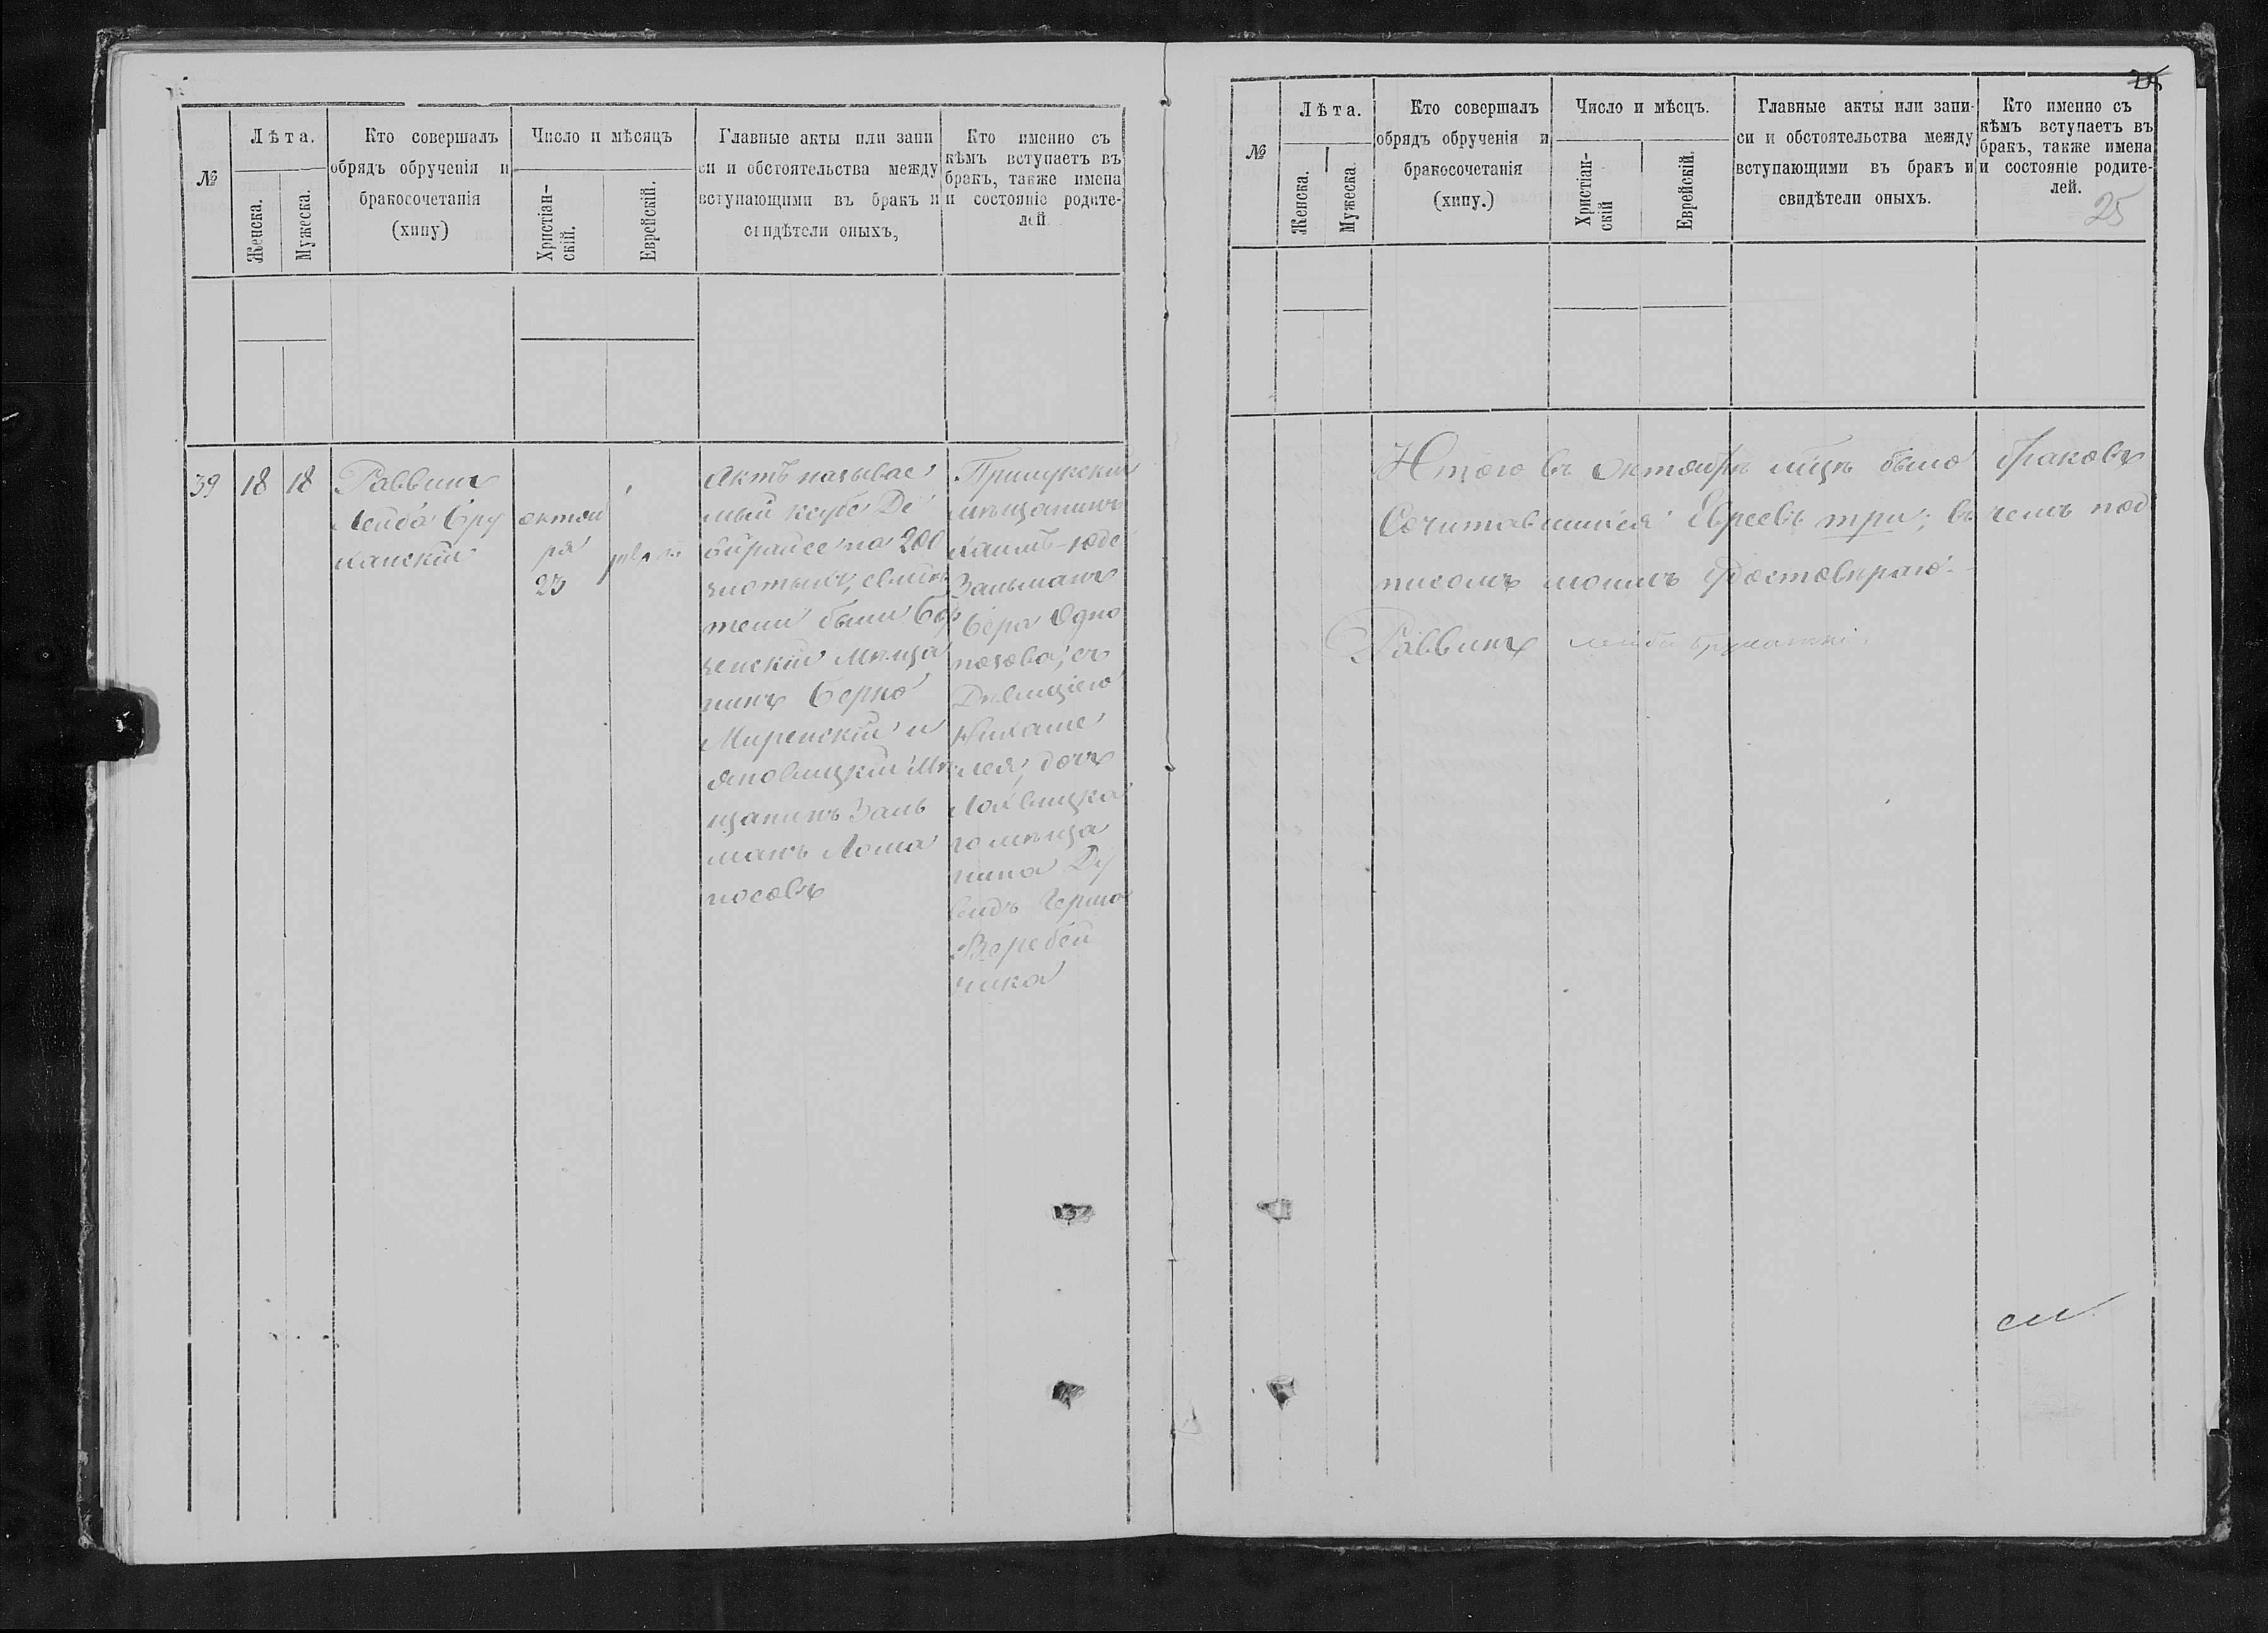 №
Лѣта.
Женска.
Мужеска.
Кто совершалъ
обрядъ обрученія и
бракосочетанія
(хипу)
Число и мѣсяцъ
Христіан-
скій.
Еврейскій.
Главные акты или запи
си и обстоятельства между
вступающими въ бракъ и
свидѣтели оныхъ,
Кто именно съ
кѣмъ вступаетъ въ
бракъ, также имена
и состояніе родите-
лей.
39
18
18
Раввинъ
Лейба Бру
канскій
октяб
ря
23
Актъ называе
мый ксубе Де
ойрайсе на 200
злотыхъ, свидѣ
тели были Бор
зенскій мѣща
нинъ Берко
Миренскій и
мѣ
щанинъ Заль
манъ Лоша
косовъ
Прилукскій
мѣщанинъ
Хаимъ-Юдe
Зальманъ
Бера Одно
позова; съ
Дѣвицею
дочь
Лохвицка
го мѣща
нина Ду
видъ Герша
Веребей
чика
№
Лѣта.
Женска.
Мужеска.
Кто совершалъ
обрядъ обрученія и
бракосочетанія
(хипу.)
Число и мѣсцъ.
Христіан-
скій
Еврейскій.
Главные акты или запи-
си и обстоятельства между
вступающими въ бракъ и
свидѣтели оныхъ.
Кто именно съ
кѣмъ вступаетъ въ
бракъ, также имена
и состояніе родите-
лей.
25
Итого въ октябрѣ м̃цѣ было браковъ
Сочитавшихся Евреевъ три; въ чемъ под
писомъ моимъ удостовѣряю.
Раввинъ Лейба Бруканскій.